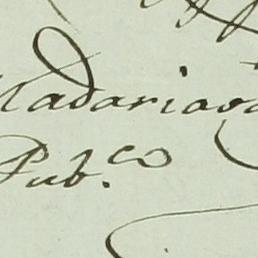 Madariaga
Pub.co